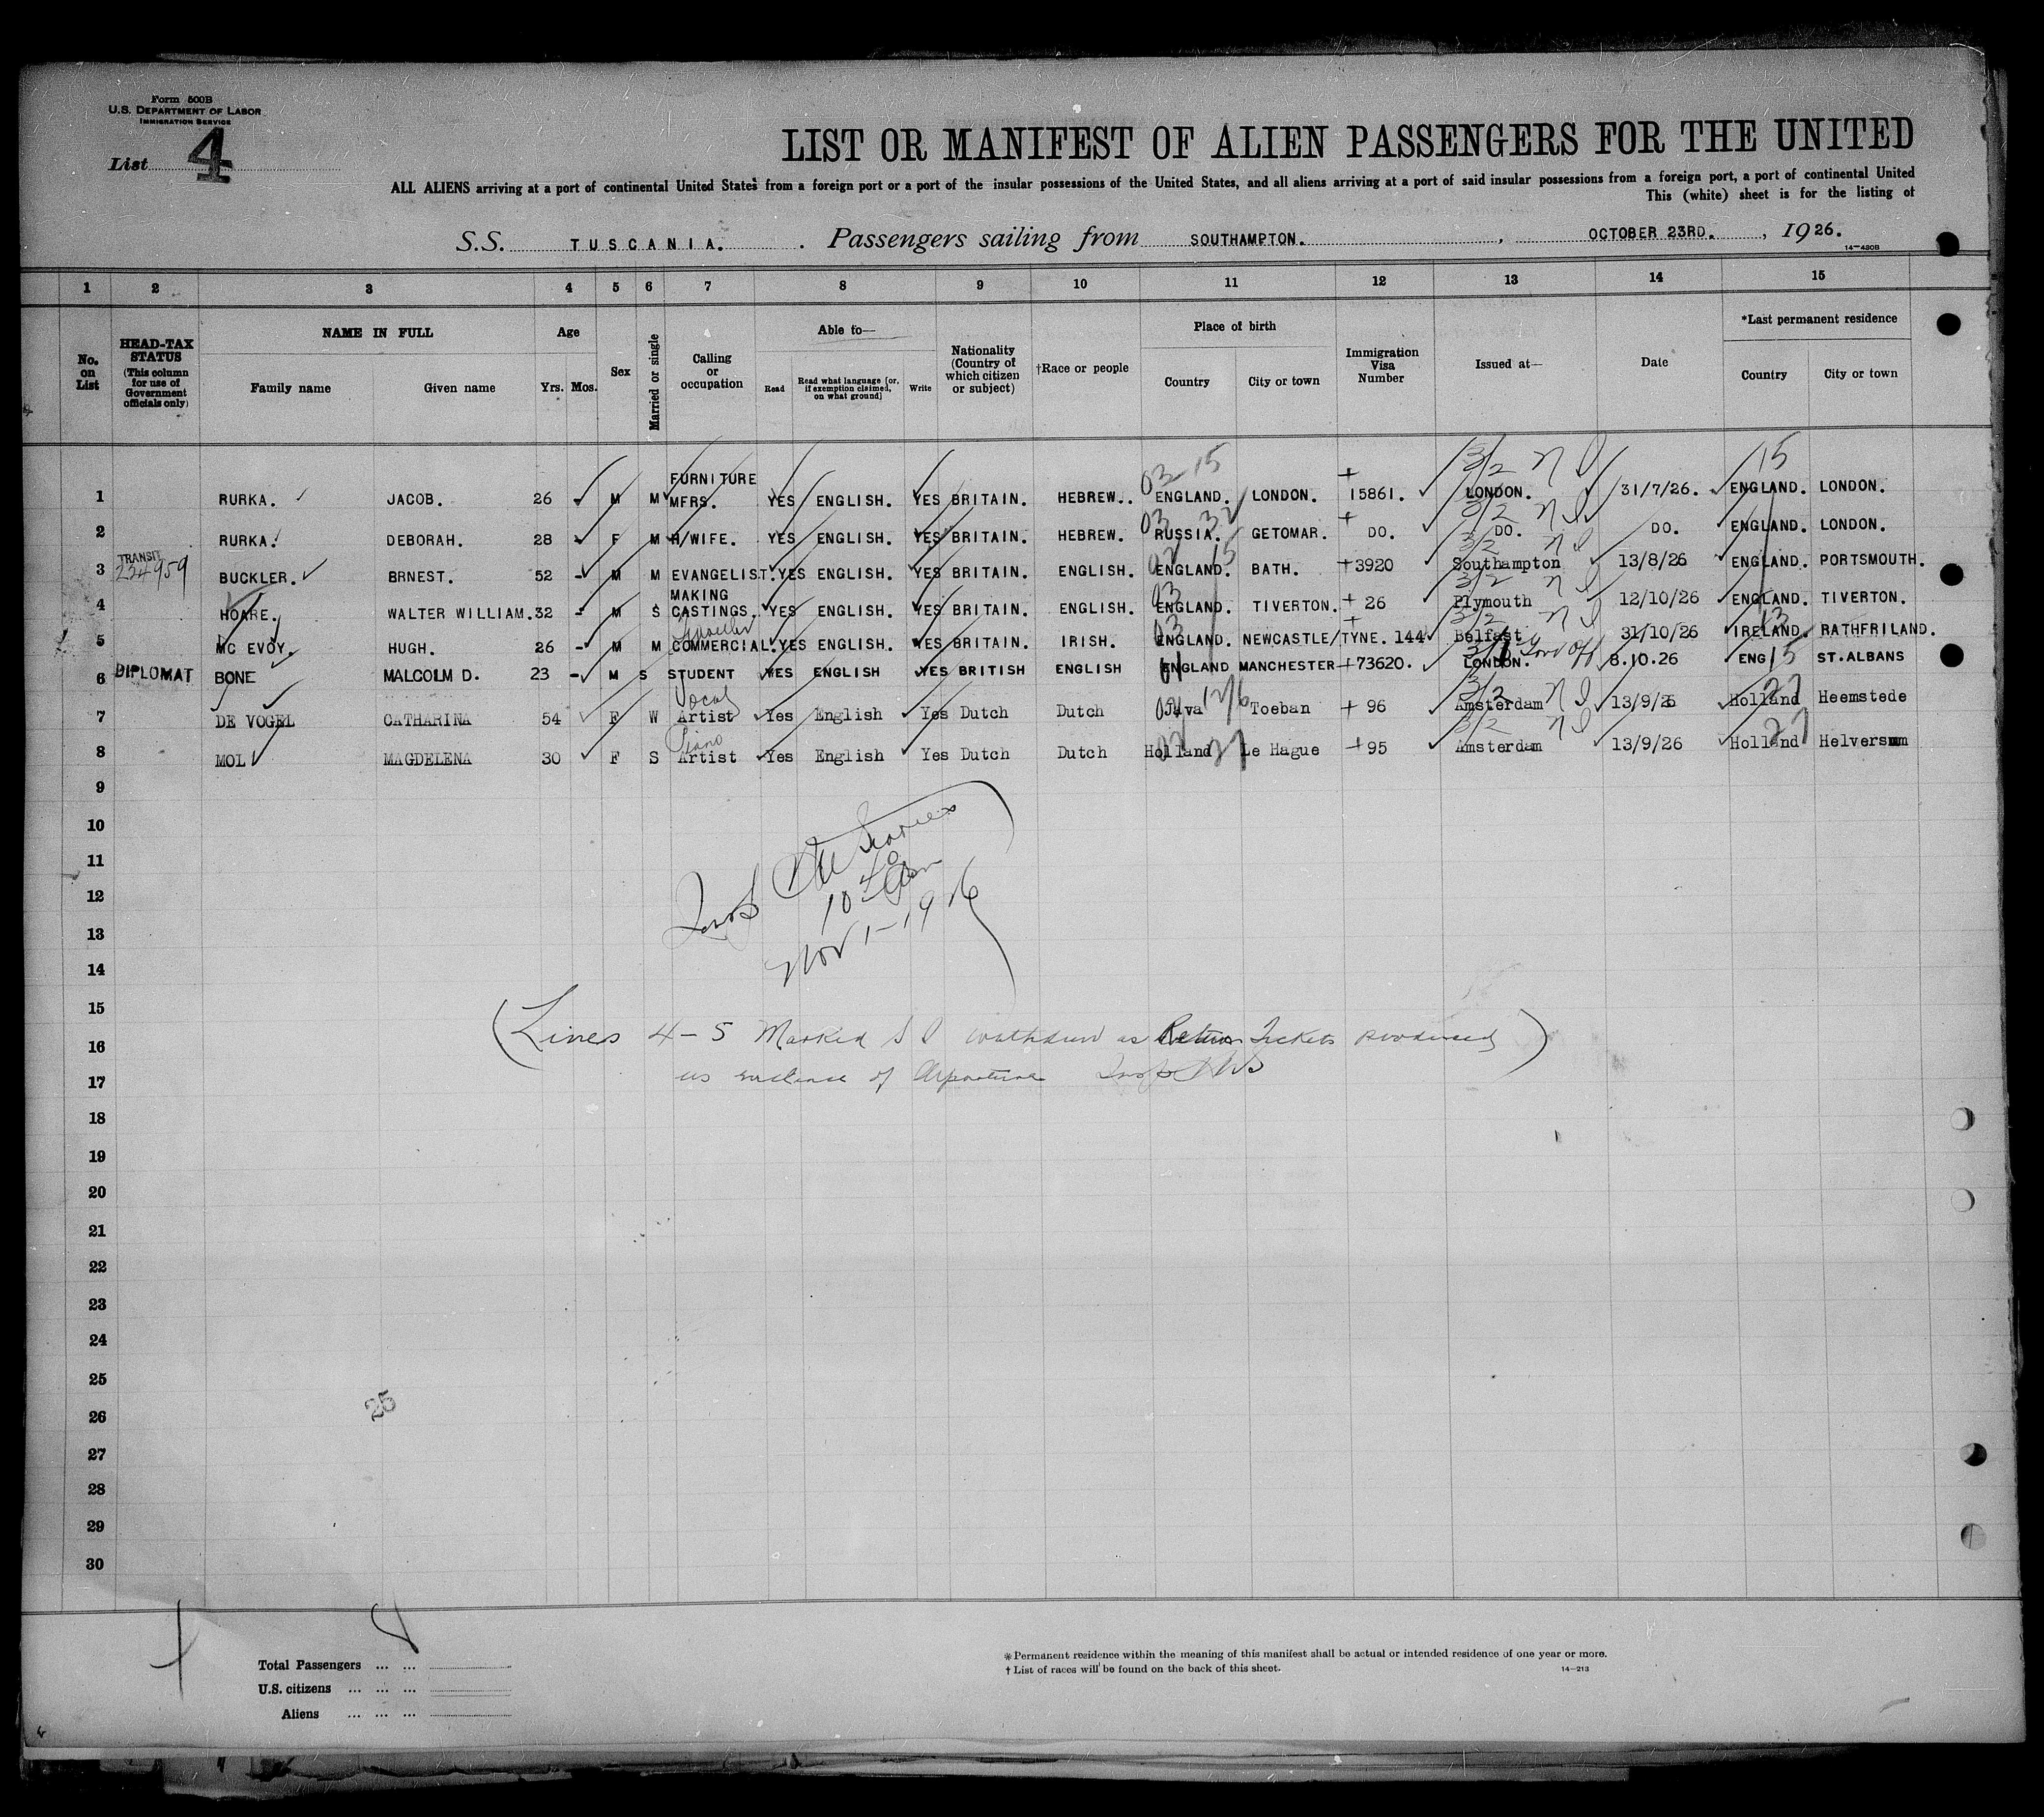 Form 500B
U.S. DEPARTMENT OF LABOR
IMMIGRATION SERVICE
List 4
LIST OR MANIFEST OF ALIEN PASSENGERS FOR THE UNITED
ALL ALIENS arriving at a port of continental United States from a foreign port or a port of the insular possessions of the United States, and all aliens arriving at a port of said insular possessions from a foreign port, a port of continental United
This (white) sheet is for the listing of
S.S. TUSCANIA. Passengers sailing from SOUTHAMPTON. , OCTOBER 23RD. , 1926.
14-430B
1 2 3 4 5 6 7 8 9 10 11 12 13 14 15
No. on List
HEAD-TAX STATUS (This column for use of Government officials only)
NAME IN FULL
Family name Given name
Age
Yrs. Mos.
Sex
Married or single
Calling or occupation
Able to—
Read Read what language [or, if exemption claimed, on what ground] Write
Nationality (Country of which citizen or subject)
†Race or people
Place of birth
Country City or town
Immigration Visa Number
Issued at—
Date
*Last permanent residence
Country City or town
03-15 3/2 15
1 RURKA. JACOB. 26 - M M FURNITURE MFRS. YES ENGLISH. YES BRITAIN. HEBREW.. ENGLAND. LONDON. 15861. LONDON. 31/7/26. ENGLAND. LONDON.
2 RURKA. DEBORAH. 28 F M H/WIFE. YES ENGLISH. YES BRITAIN. HEBREW. RUSSIA. GETOMAR. DO. DO. DO. ENGLAND. LONDON.
3 TRANSIT 224959 BUCKLER. BRNEST. 52 - M M EVANGELIST. YES ENGLISH. YES BRITAIN. ENGLISH. ENGLAND. BATH. 3920 Southampton 13/8/26 ENGLAND. PORTSMOUTH.
4 HOARE. WALTER WILLIAM. 32 - M S MAKING CASTINGS. YES ENGLISH. YES BRITAIN. ENGLISH. ENGLAND. TIVERTON. 26 Plymouth 12/10/26 ENGLAND. TIVERTON.
5 MC EVOY. HUGH. 26 - M M COMMERCIAL. Traveller YES ENGLISH. YES BRITAIN. IRISH. ENGLAND. NEWCASTLE/TYNE. 144 Belfast 31/10/26 IRELAND. RATHFRILAND.
6 DIPLOMAT BONE MALCOLM D. 23 - M S STUDENT YES ENGLISH YES BRITISH ENGLISH ENGLAND MANCHESTER 73620. LONDON. 8.10.26 ENG ST.ALBANS
7 DE VOGEL CATHARINA 54 F W Vocal Artist Yes English Yes Dutch Dutch Java Toeban 96 Amsterdam 13/9/26 Holland Heemstede
8 MOL MAGDELENA 30 F S Piano Artist Yes English Yes Dutch Dutch Holland Le Hague 95 Amsterdam 13/9/26 Holland Helversum
9
10
11
12
13
14
Nov 1-1926
15
(Lines 4-5 Marked S I withdrawn as Return Tickets produced
16
as evidence of departure
17
18
19
20
21
22
23
24
25
25
26
27
28
29
30
Total Passengers ... ...
U.S. citizens ... ... ...
Aliens ... ... ...
* Permanent residence within the meaning of this manifest shall be actual or intended residence of one year or more.
† List of races will be found on the back of this sheet.
14-213